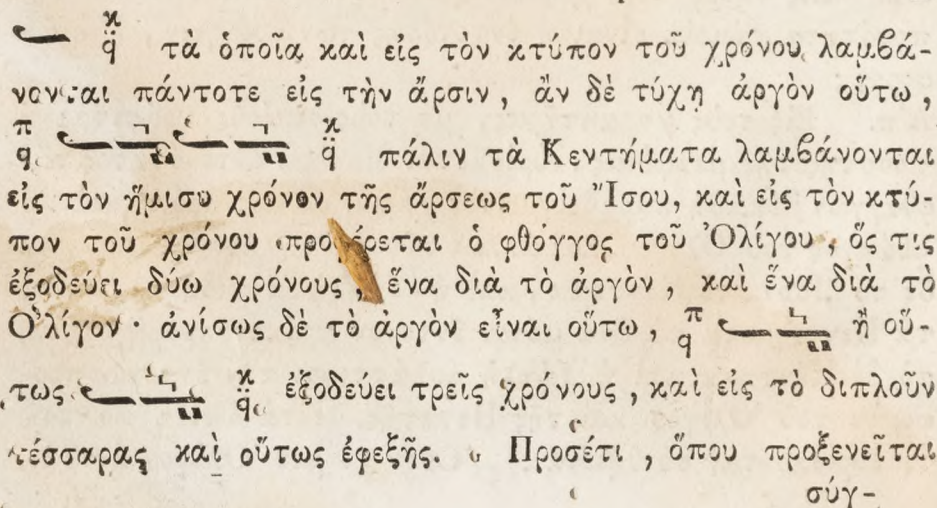 ϰ
q̈ τὰ ὁποῖα καὶ εἰς τὸν κτύπον τοῦ χρόνου λαμβά-
νονται πάντοτε εἰς τὴν ἄρσιν, ἂν δὲ τύχῃ ἀργὸν οὕτω,
π
q ϰ
q̈ πάλιν τὰ Κεντήματα λαμβάνονται
εἰς τὸν ἥμισυ χρόνον τῆς ἄρσεως τοῦ Ἴσου, καὶ εἰς τὸν κτύ-
πον τοῦ χρόνου προφέρεται ὁ φθόγγος τοῦ Ὀλίγου, ὅς τις
ἐξοδεύει δύω χρόνους, ἕνα διὰ τὸ ἀργὸν, καὶ ἕνα διὰ τὸ
Ὀλίγον· ἀνίσως δὲ τὸ ἀργὸν εἶναι οὕτω, π
q ἢ οὕ-
τως ϰ
q̈ ἐξοδεύει τρεῖς χρόνους, καὶ εἰς τὸ διπλοῦν
τέσσαρας καὶ οὕτως ἐφεξῆς. Προσέτι, ὅπου προξενεῖται
σύγ-